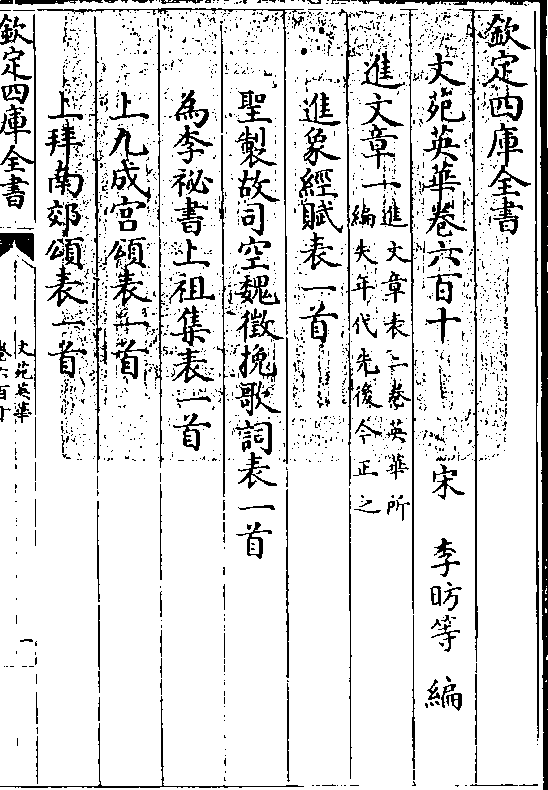 欽定四庫全書
文苑英華卷六百十
宋 李昉等 編
進文章一
進文章表二卷英華所
編失年代先後今正之
進象經賦表一首
聖製故司空魏徵挽歌詞表一首
為李祕書上祖集表一首
上九成宮頌表一首
上拜南郊頌表一首
欽定四庫全書
文苑英華
卷六百十
一